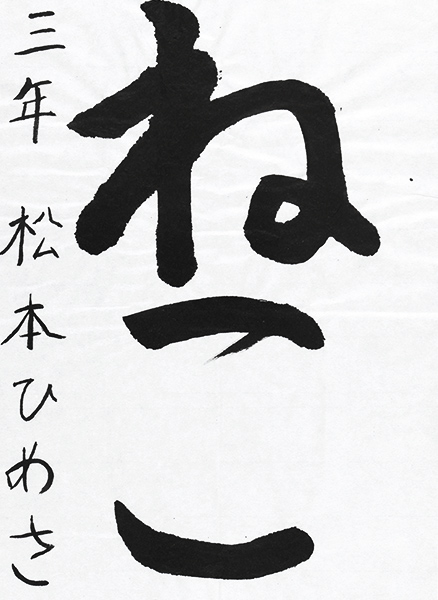 ねこ
三年 松本ひめき